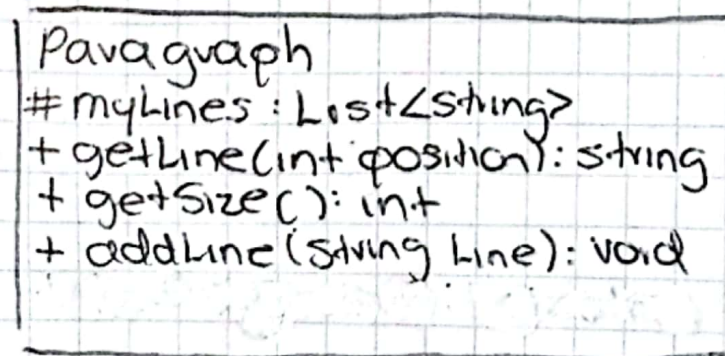 Paragraph
# myLines : List<String>
+ getLine(int position): string
+ getSize(): int
+ addLine(string Line): void